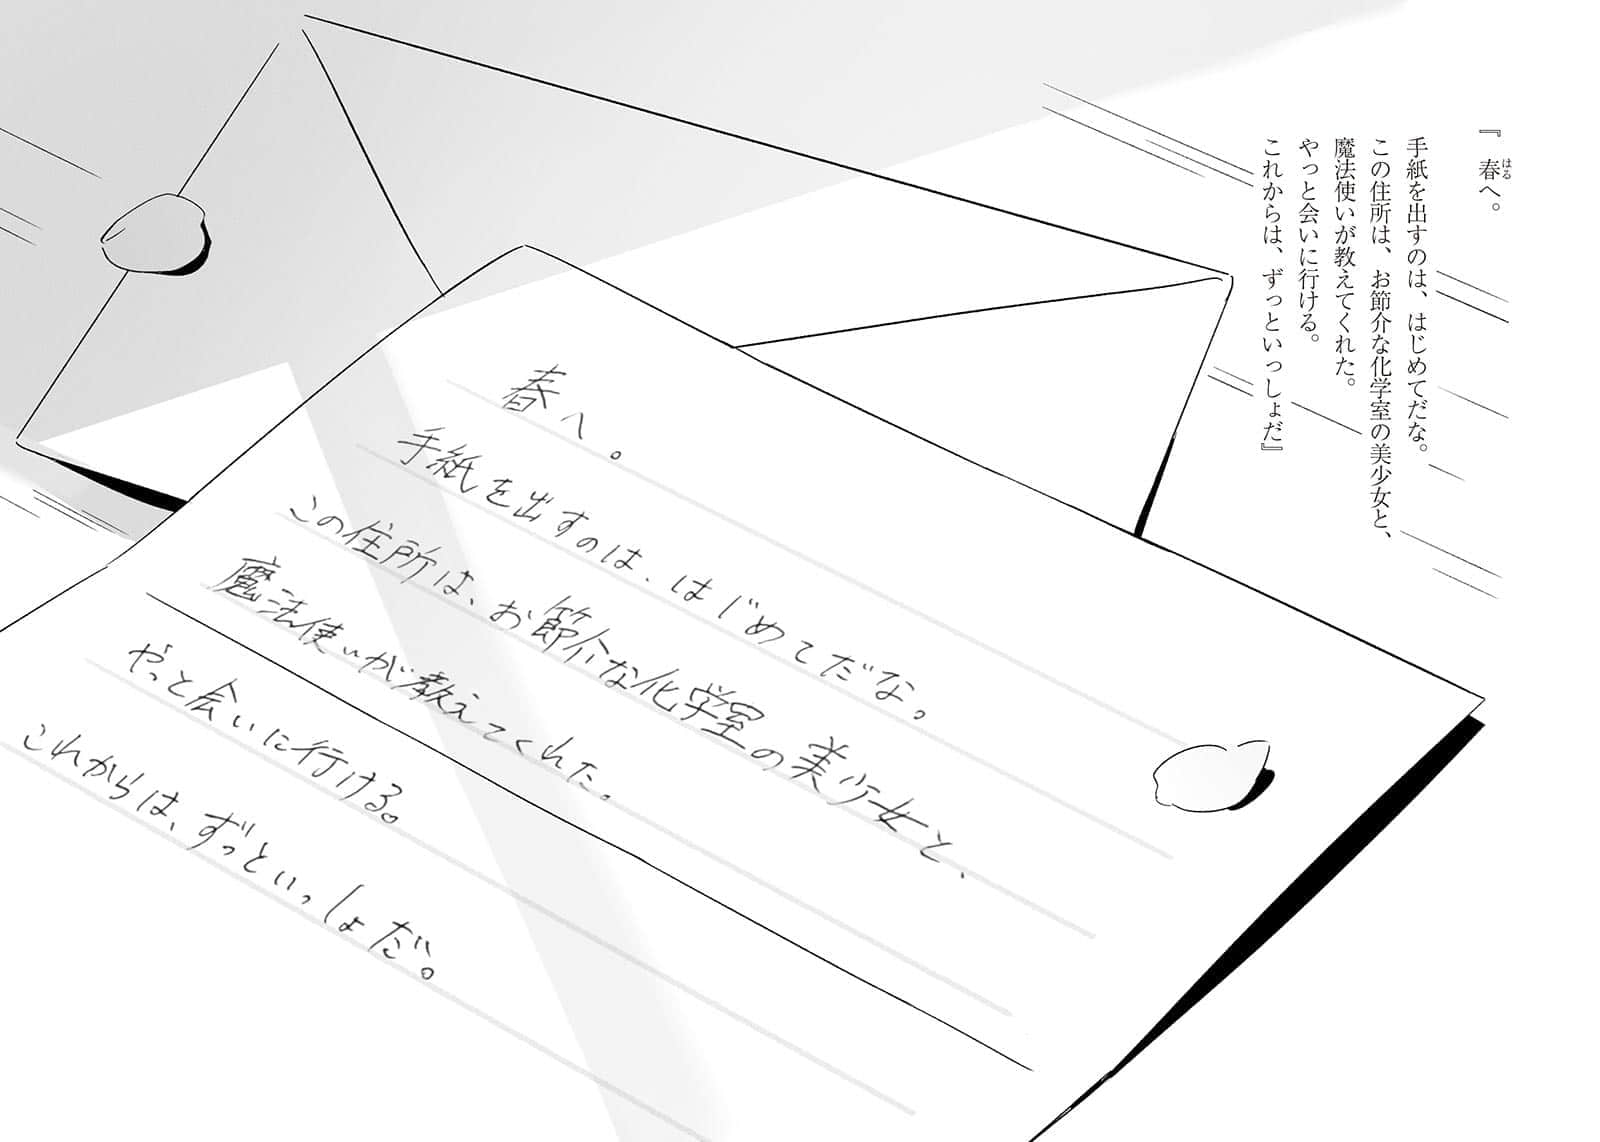 『　春へ。
はる
手紙を出すのは、はじめてだな。
この住所は、お節介な化学室の美少女と、
魔法使いが教えてくれた。
やっと会いに行ける。
これからは、ずっといっしょだ』
春へ。
手紙を出すのは、はじめてだな。
この住所は、お節介な化学室の美少女と、
魔法使いが教えてくれた。
やっと会いに行ける。
これからは、ずっといっしょだ。